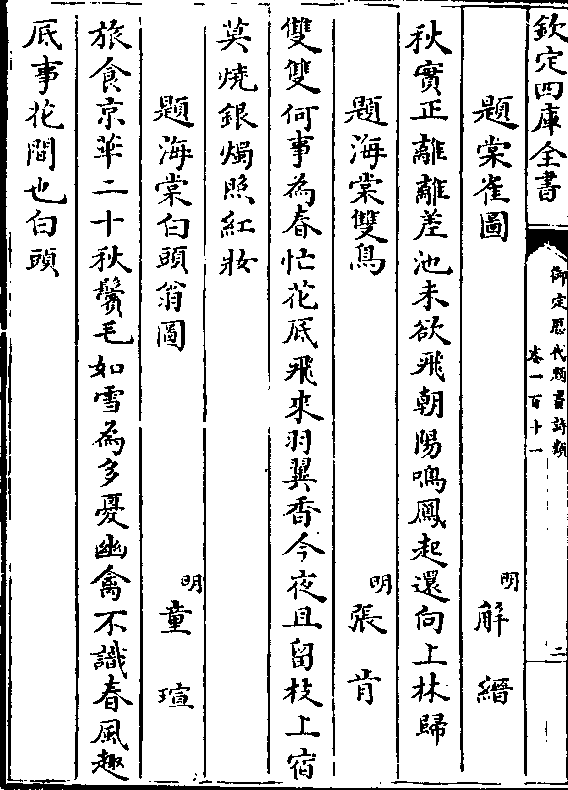 欽定四庫全書
御定歷代題畫詩類
卷一百十一
二
題棠雀圖
明
解縉
秋實正離離差池未欲飛朝陽鳴鳳起還向上林歸
題海棠雙鳥
明
張肯
雙雙何事為春忙花底飛來羽翼香今夜且留枝上宿
莫燒銀燭照紅妝
題海棠白頭翁圖
明
童瑄
旅食京華二十秋鬢毛如雪為多憂幽禽不識春風趣
底事花間也白頭